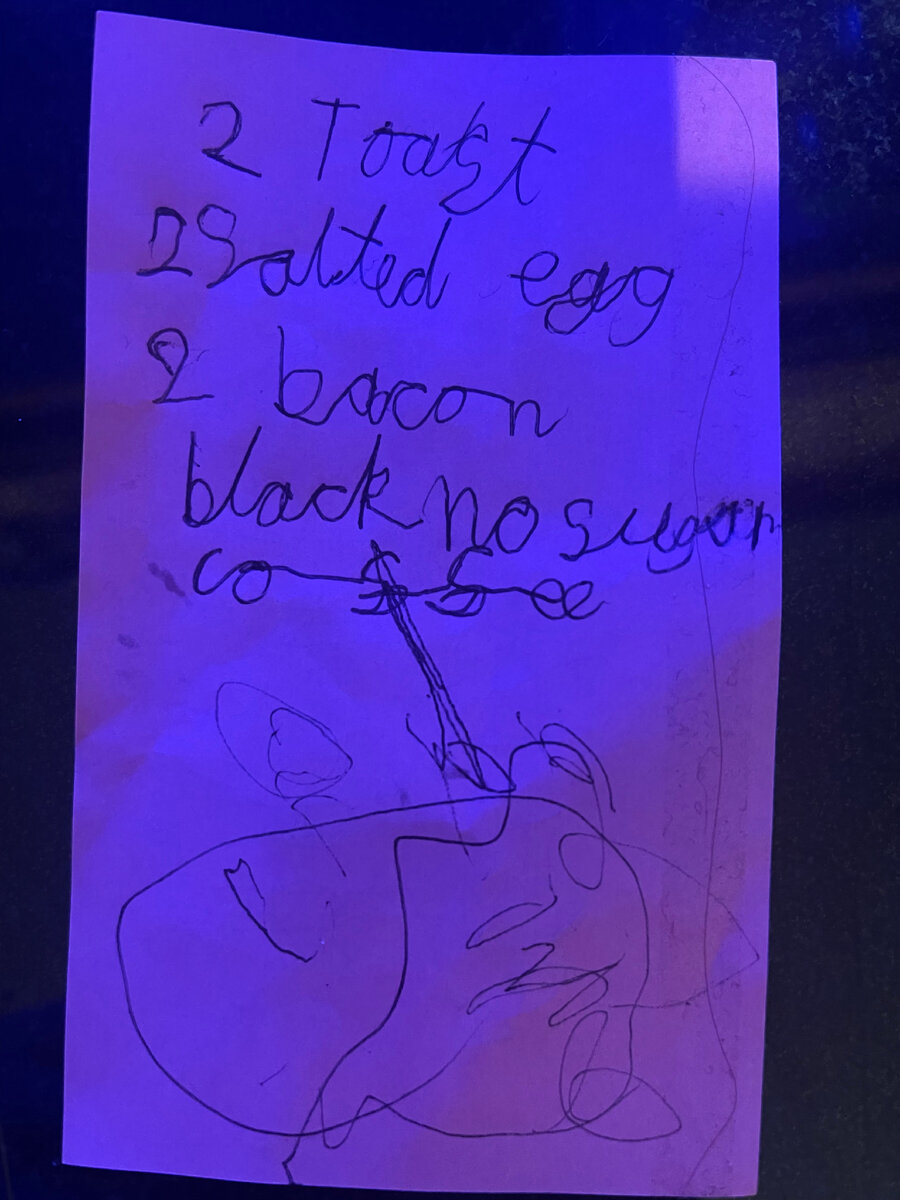 2 Toast
2 Salted egg
2 bacon
black no sugar
coffee